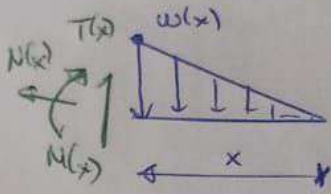 T(x) ω(x)
N(x)
M(x)
x